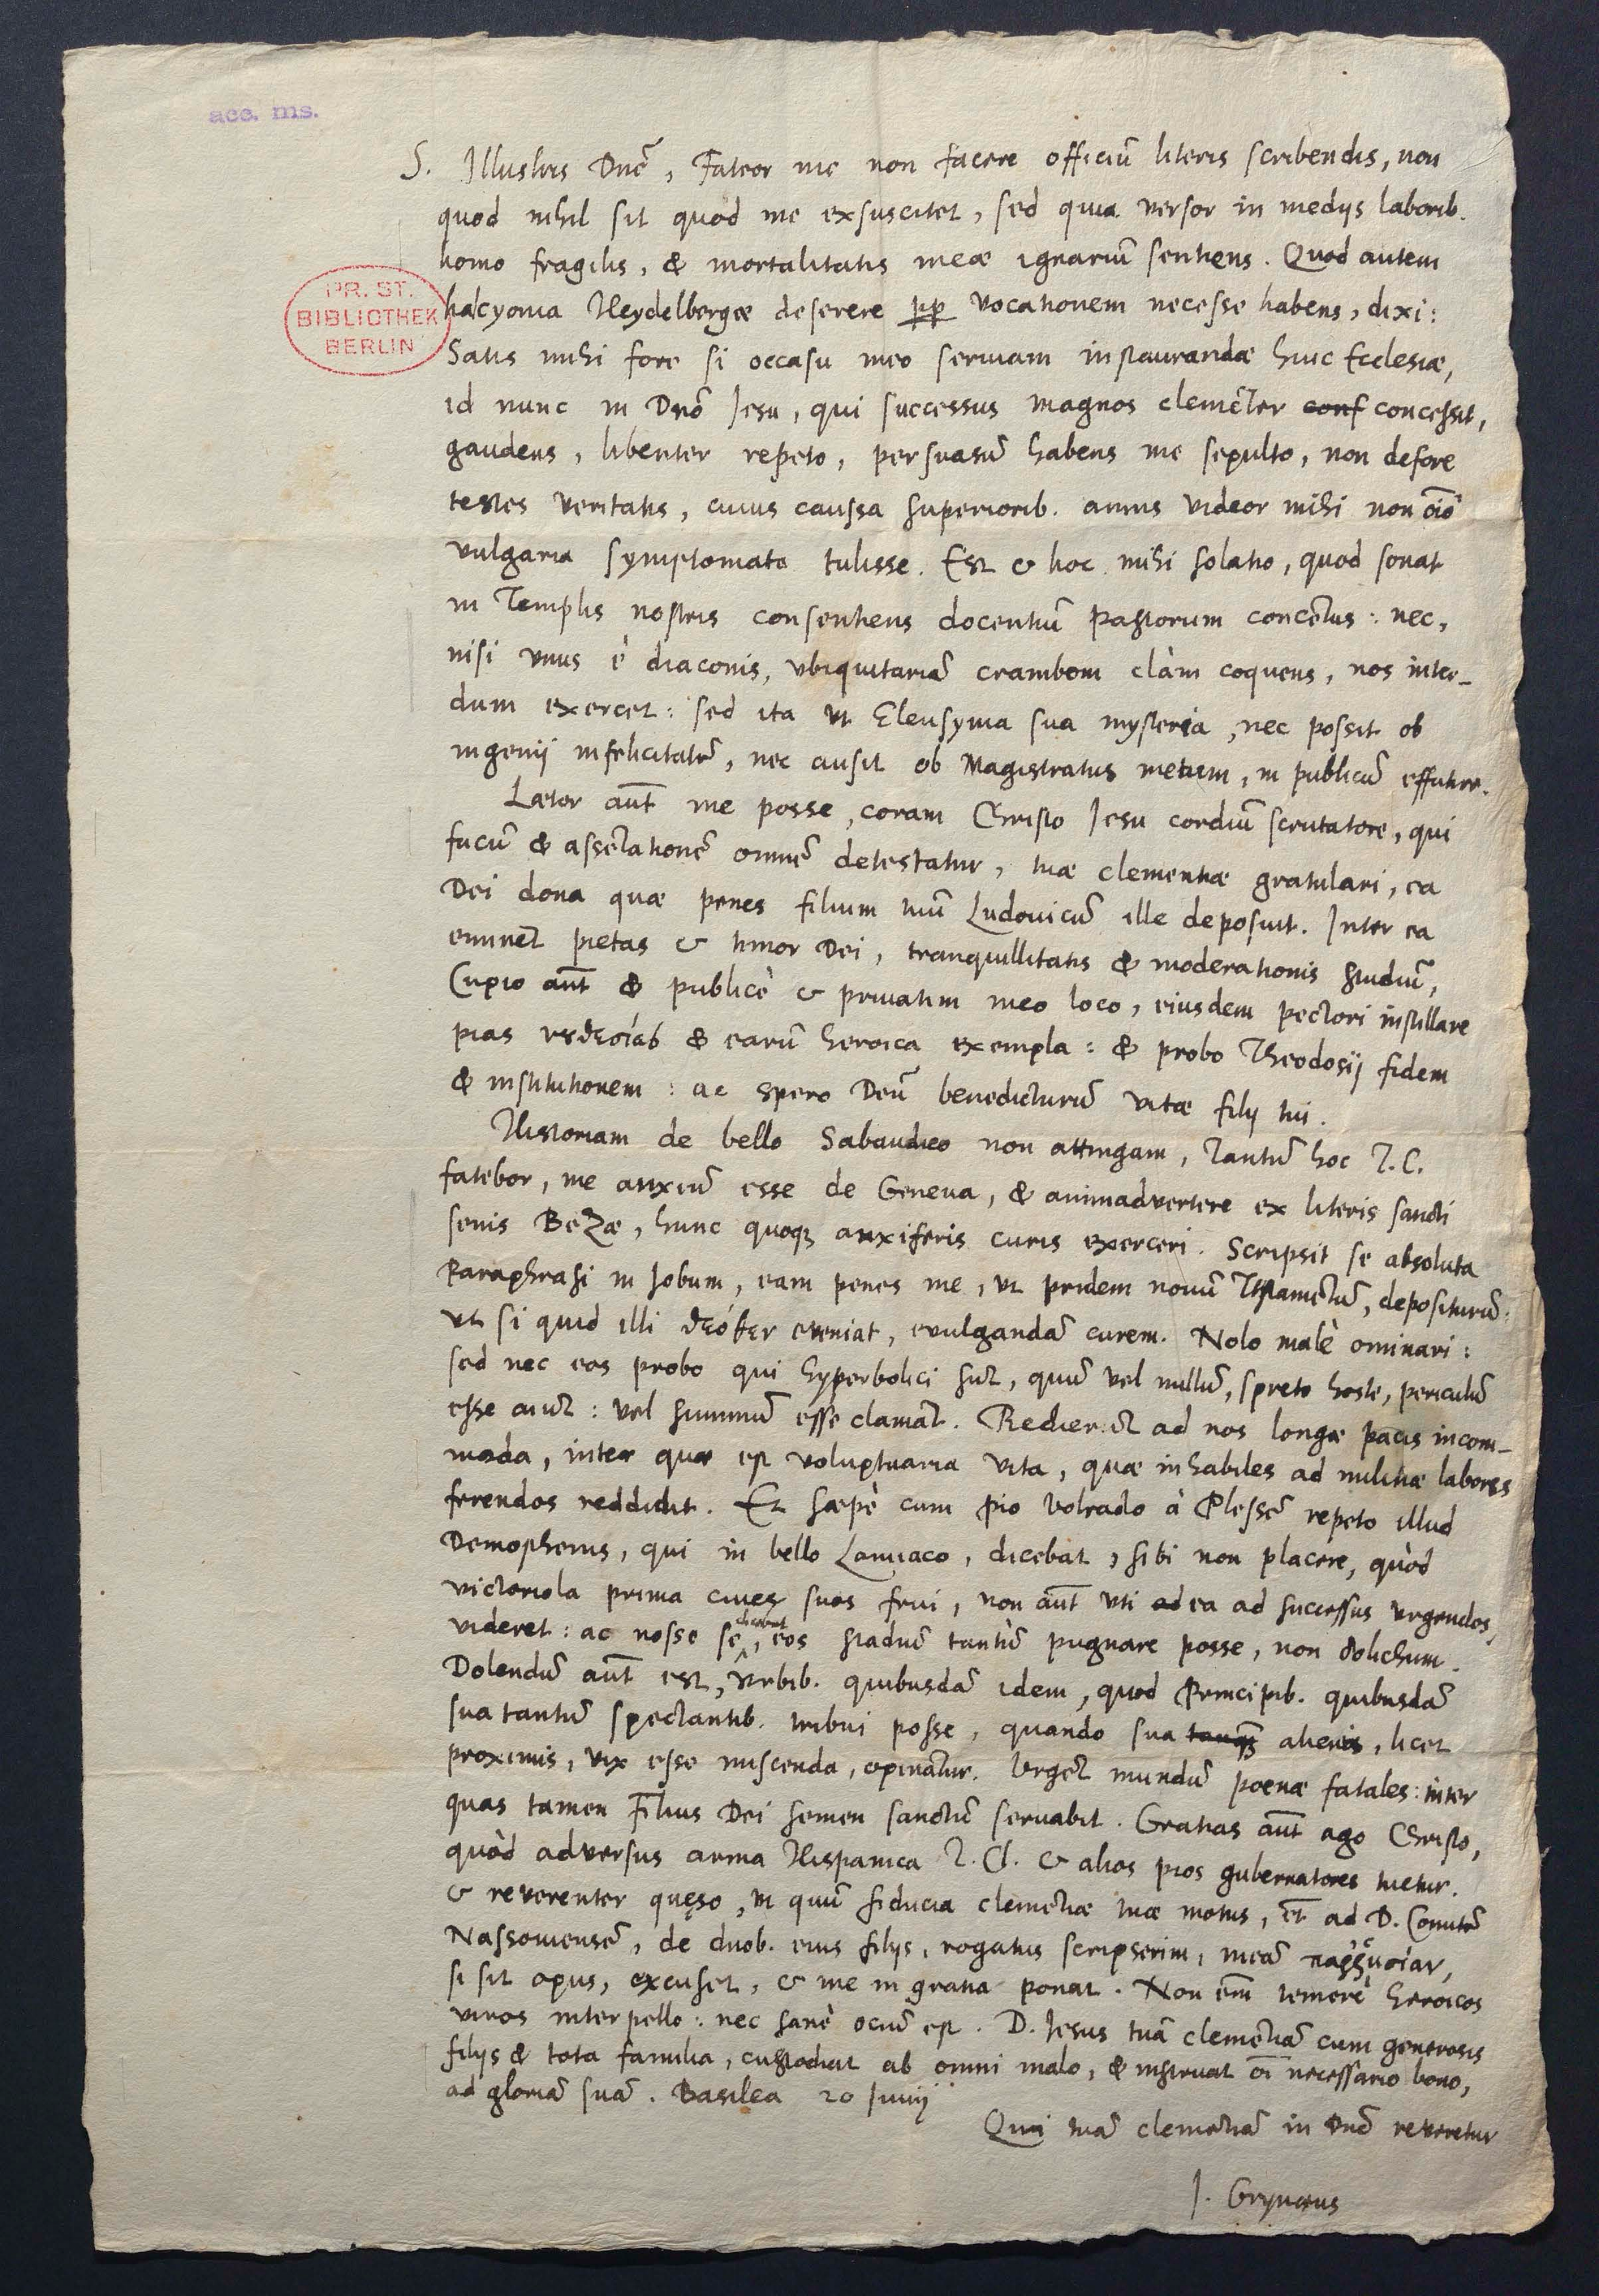 acc. ms.
S. Illustris Dnē, Fateor me non facere officiū literis scribendis, non
quod nihil sit quod me exsuscitet, sed quia versor in medijs laborib.
homo fragilis, & mortalitatis meæ ignarium sentiens. Quod autem
PR. ST.
BIBLIOTHEK
BERLIN
halcyonia Heydelbergæ deserere pp vocationem necesse habens, dixi:
Satis mihi fore si occasu meo seruiam instaurandæ huic Ecclesiæ,
id nunc in Dnō Jesu, qui successus magnos clemēter conf concessit,
gaudens, libenter repeto, persuasū habens me sepulto, non defore
testes veritatis, cuius caussa superiorib. annis videor mihi non oīo
vulgaria symptomata tulisse. Est & hoc mihi solatio, quod sonat
in Templis nostris consentiens docentiū pastorum concētus: nec,
nisi vnus è diaconis, vbiquitariā cramben clàm coquens, nos inter-
dum exercet: sed ita vt Eleusynia sua mysteria, nec possit ob
ingenij infelicitatē, nec ausit ob Magistratus metum, in publicū effutire.
Lætor aūt me posse, coram Christo Jesu cordiū scrutatore, qui
fucū & assētationē omnē detestatur, tuæ clementiæ gratulari, ea
Dei dona quæ penes filium tuū Ludouicū ille deposuit. Inter ea
eminēt pietas & timor Dei, tranquillitatis & moderationis studiū,
Cupio aūt & publicè & priuatim meo loco, eiusdem pectori instillare
pias νȣθεσίας & earū heroica exempla: & probo Theodosij fidem
& institutionem: ac spero Deū benedicturū vitæ filij tui.
Historiam de bello Sabaudico non attingam, Tantū hoc T. C.
fatebor, me anxiū esse de Geneua, & animadvertere ex literis sancti
senis Bezæ, hunc quoq; anxiferis curis exerceri. Scripsit se absoluta
Paraphrasi in Jobum, eam penes me, vt pridem nouū Testamētū, depositurū:
vt si quid illi θεόθεν eveniat, evulgandā curem. Nolo malè ominari:
sed nec eos probo qui hyperbolici sūt, quū vel nullū, spreto hoste, periculū
esse aiūt: vel summū esse clamāt. Redierūt ad nos longæ pacis incom-
moda, inter quæ est voluptuaria vita, quæ inhabiles ad militiæ labores
ferendos reddidit. Et sæpè cum pio Volrado à Plessē repeto illud
Demosthenis, qui in bello Lamiaco, dicebat, sibi non placere, quòd
victoriola prima ciues suos frui, non aūt vti ad ea ad successus vrgendos,
videret: ac nosse se dicebat, eos stadiū tantùm pugnare posse, non dolichum.
Dolendū aūt est, Vrbib. quibusdā idem, quod Principib. quibusdā
sua tantū spectantib. tribui posse, quando sua tanq; alienis, licet
proximis, vix esse miscenda, opinātur. Vrgēt mundū poenæ fatales: inter
quas tamen Filius Dei semen sanctū seruabit. Gratias aūt ago Christo,
quòd adversus arma Hispanica T. Cl. & alios pios gubernatores tuetur.
& reverenter quęso, vt quū fiducia clemētiæ tuæ motus, et ad D. Comitē
Nassouiensē, de duob. eius filijs, rogatus scripserim, meā παῤῥησίαν,
si sit opus, excuset, & me in gratia ponat. Non em̄ temerè heroicos
viros interpello: nec sanè ociū est. D. Jesus tuā clemētiā cum generosis
filijs & tota familia, custodiat ab omni malo, & instruat oī necessario bono,
ad gloriā suā. Basilea 20 Junij
Qui tuā clemētiā in Dnō reveretur
J. Grynæus